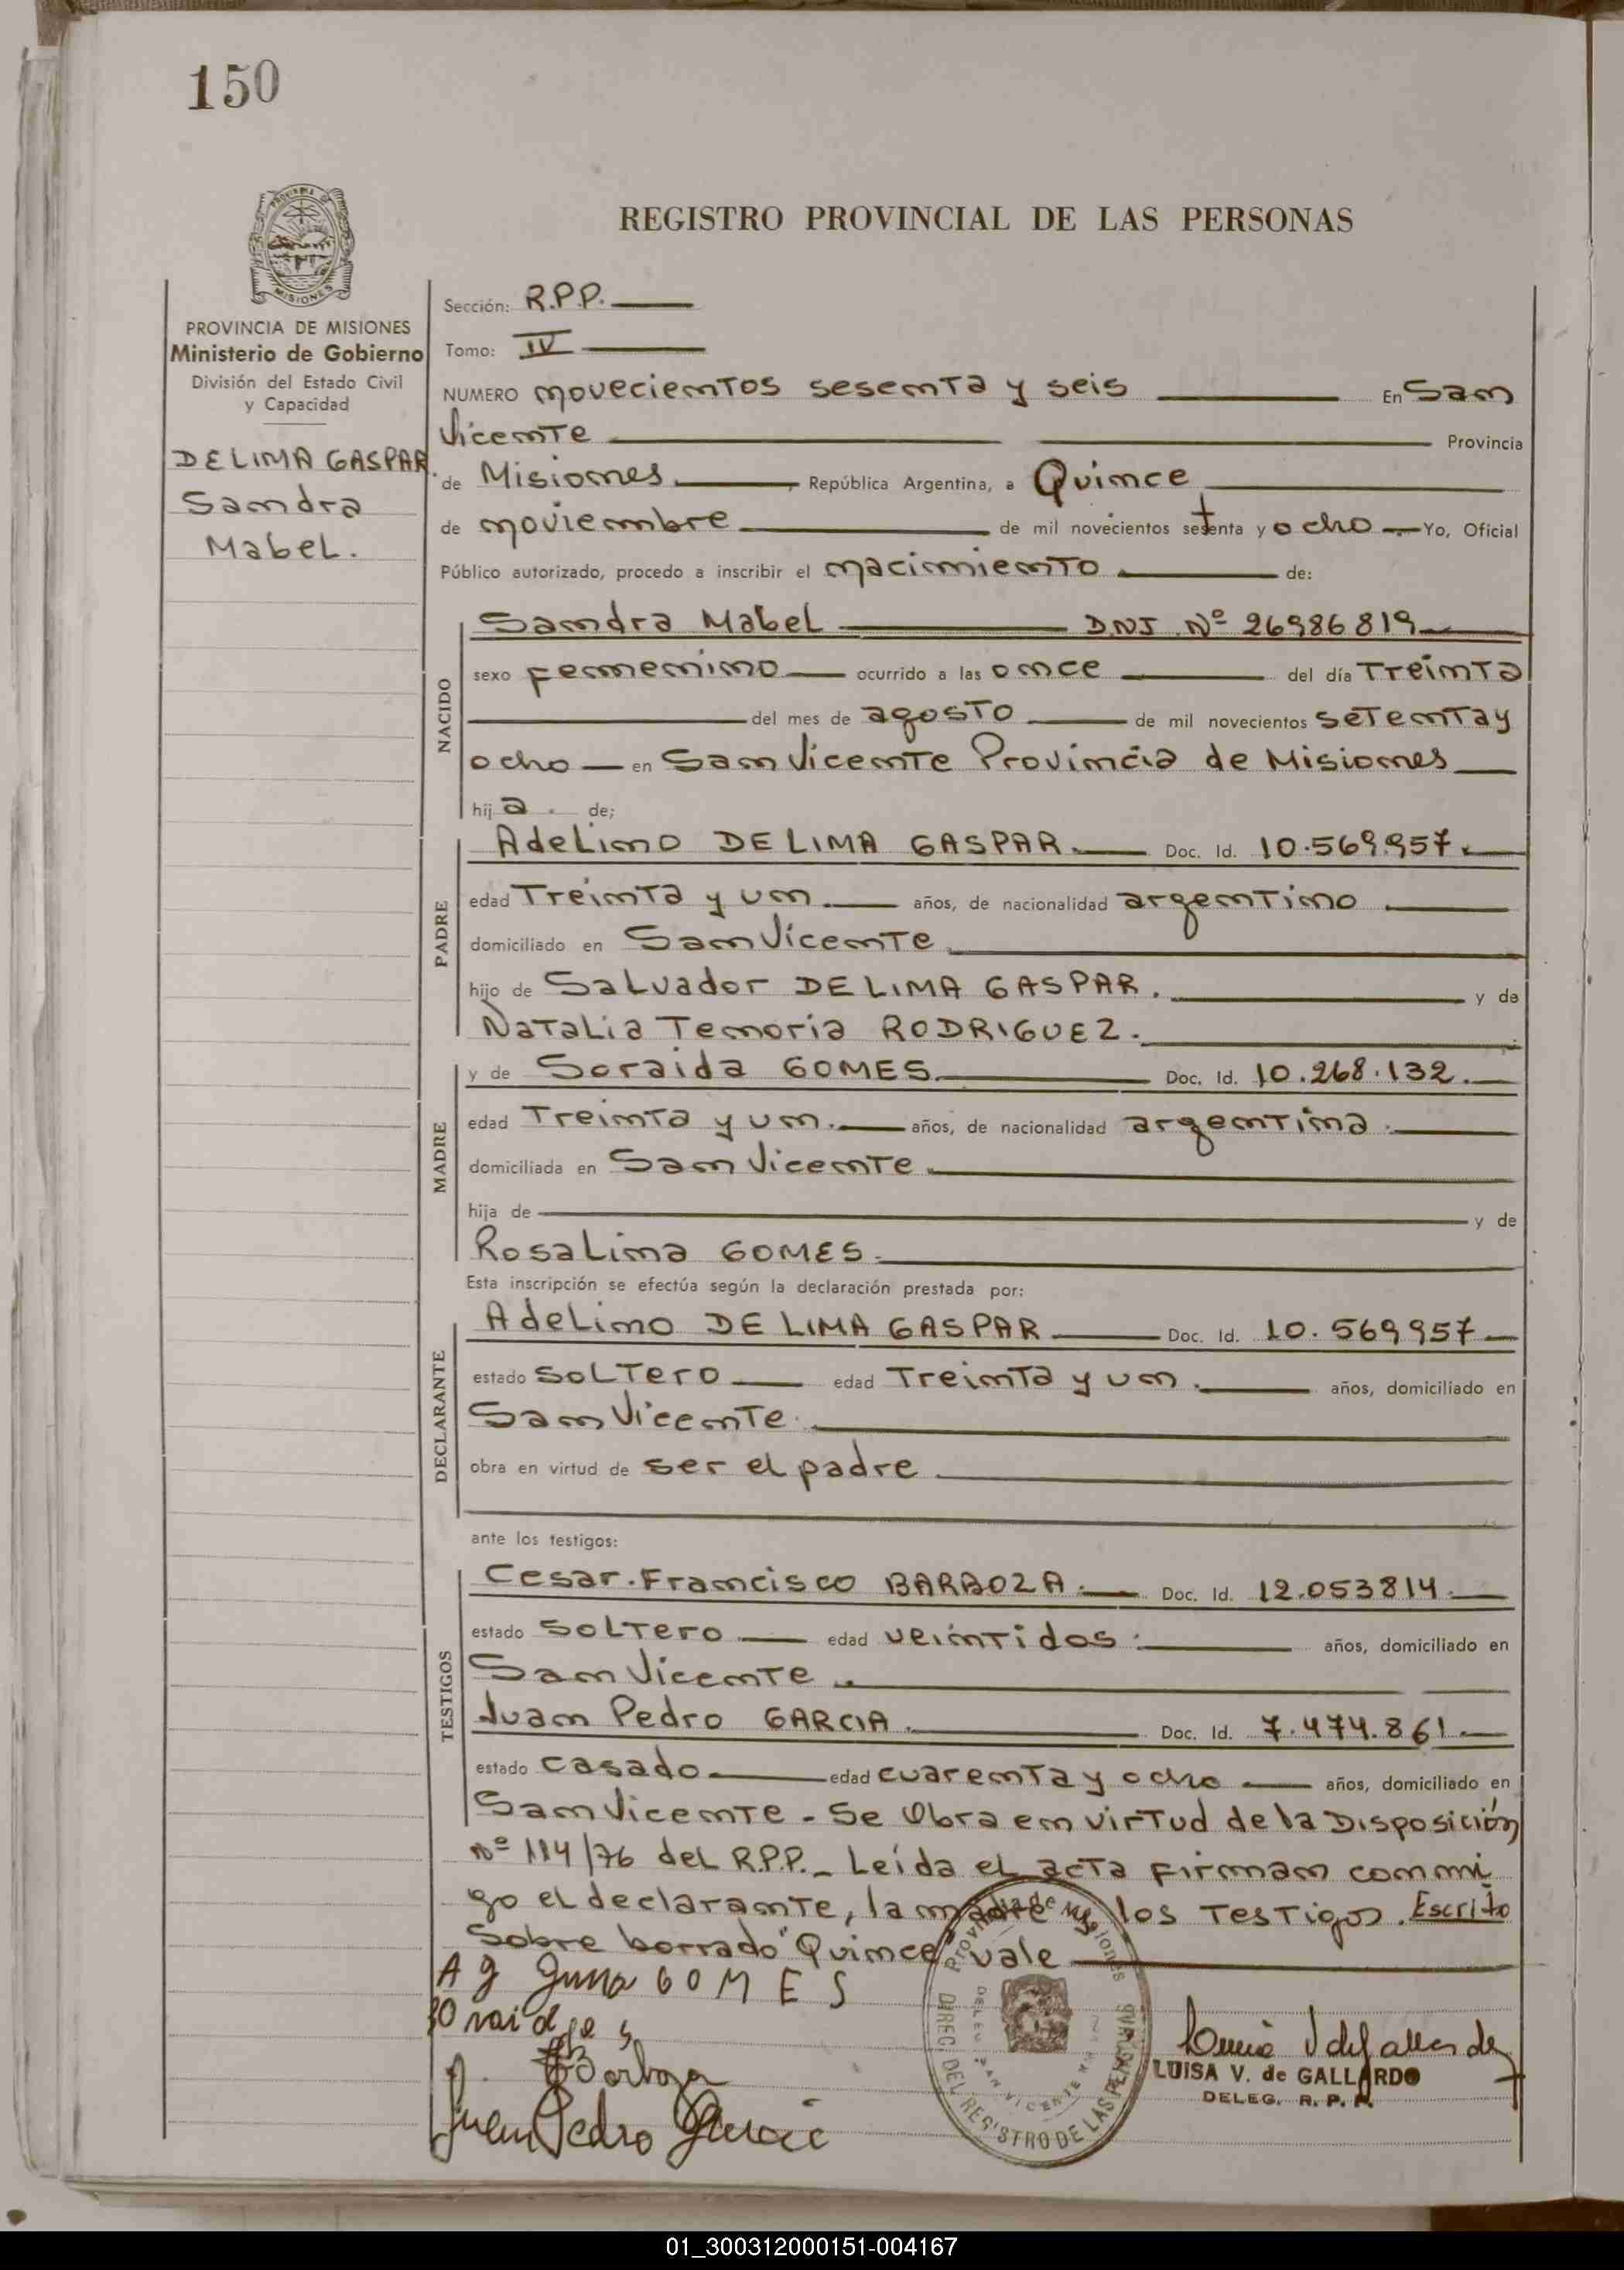 150
REGISTRO PROVINCIAL DE LAS PERSONAS
PROVINCIA DE MISIONES
Ministerio de Gobierno
División del Estado Civil
y Capacidad
DE LIMA GASPAR.
Sandra
Mabel.
Sección: R.P.P.
Tomo: IV
NUMERO novecientos sesenta y seis En San
Vicente Provincia
de Misiones, República Argentina, a Quince
de noviembre de mil novecientos setenta y ocho Yo, Oficial
Público autorizado, procedo a inscribir el nacimiento de:
NACIDO
Sandra Mabel DNI Nº 26986819
sexo femenino ocurrido a las once del día Treinta
del mes de agosto de mil novecientos setenta y
ocho en San Vicente Provincia de Misiones
hija de;
PADRE
Adelino DE LIMA GASPAR. Doc. Id. 10.569.957.
edad Treinta y un. años, de nacionalidad argentino
domiciliado en San Vicente.
hijo de Salvador DE LIMA GASPAR. y de
Natalia Tenoria RODRIGUEZ.
MADRE
y de Soraida GOMES. Doc. Id. 10.268.132.
edad Treinta y un. años, de nacionalidad argentina.
domiciliada en San Vicente.
hija de y de
Rosalina GOMES.
Esta inscripción se efectúa según la declaración prestada por:
DECLARANTE
Adelino DE LIMA GASPAR Doc. Id. 10.569957
estado soltero edad Treinta y un. años, domiciliado en
San Vicente.
obra en virtud de ser el padre
ante los testigos:
TESTIGOS
Cesar.Francisco BARBOZA. Doc. Id. 12.053814.
estado soltero edad veintidos. años, domiciliado en
San Vicente.
Juan Pedro GARCIA. Doc. Id. 7.474.861.
estado casado edad cuarenta y ocho años, domiciliado en
San Vicente - Se Obra en virtud de la Disposición
nº 114/76 del R.P.P. Leída el acta firman conmi
go el declarante, la madre y los Testigos. Escrito
Sobre borrado "Quince" vale
GOMES
Juan Pedro Garcia
Provincia de Misiones
DIREC. DEL REGISTRO DE LAS PERSONAS
LUISA V. de GALLARDO
DELEG. R. P. P.
01_300312000151-004167